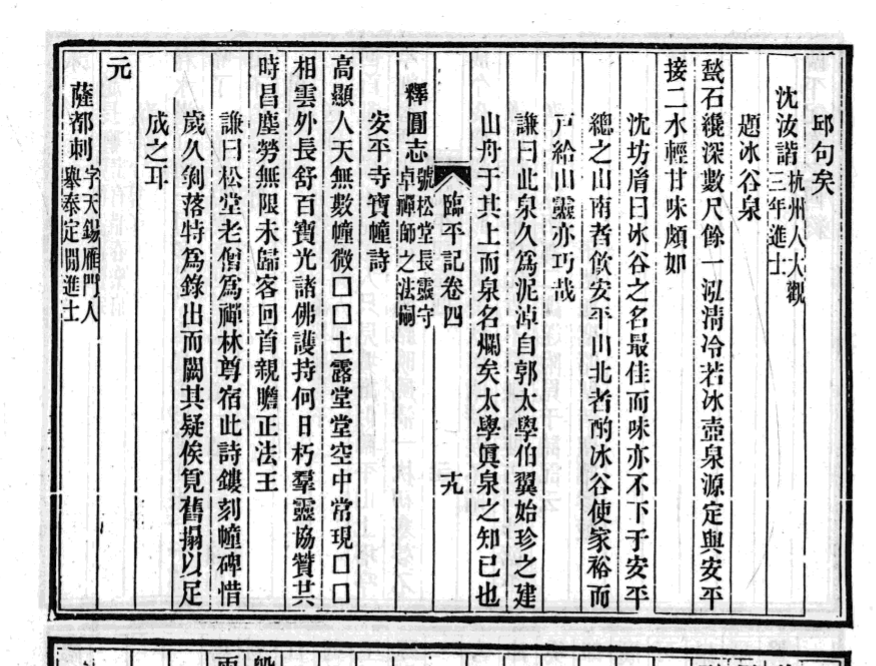 邱句矣
沈汝諧杭州人大觀
三年進士
題冰谷泉
甃石纔深數尺餘一泓淸冷若冰壺泉源定與安平
接二水輕甘味頗如
沈坊肩曰冰谷之名最佳而味亦不下于安平
總之山南者飮安平山北者酌冰谷使家裕而
戸給山靈亦巧哉
謙曰此泉久爲泥淖自郭太學伯翼始珍之建
山舟于其上而泉名爛矣太學眞泉之知已也
臨平記卷四
釋圓志號松堂長靈守
卓禪師之法嗣
安平寺寶幢詩
高顯人天無數幢微□□土露堂堂空中常現□□
相雲外長舒百寶光諸佛護持何日朽羣靈協贊其
時昌塵勞無限未歸客回首親瞻正法王
謙曰松堂老僧爲禪林尊宿此詩鏤刻幢碑惜
歲久剝落特爲錄出而闕其疑俟覓舊搨以足
成之耳
元
薩都刺字天錫雁門人
舉泰定閒進士